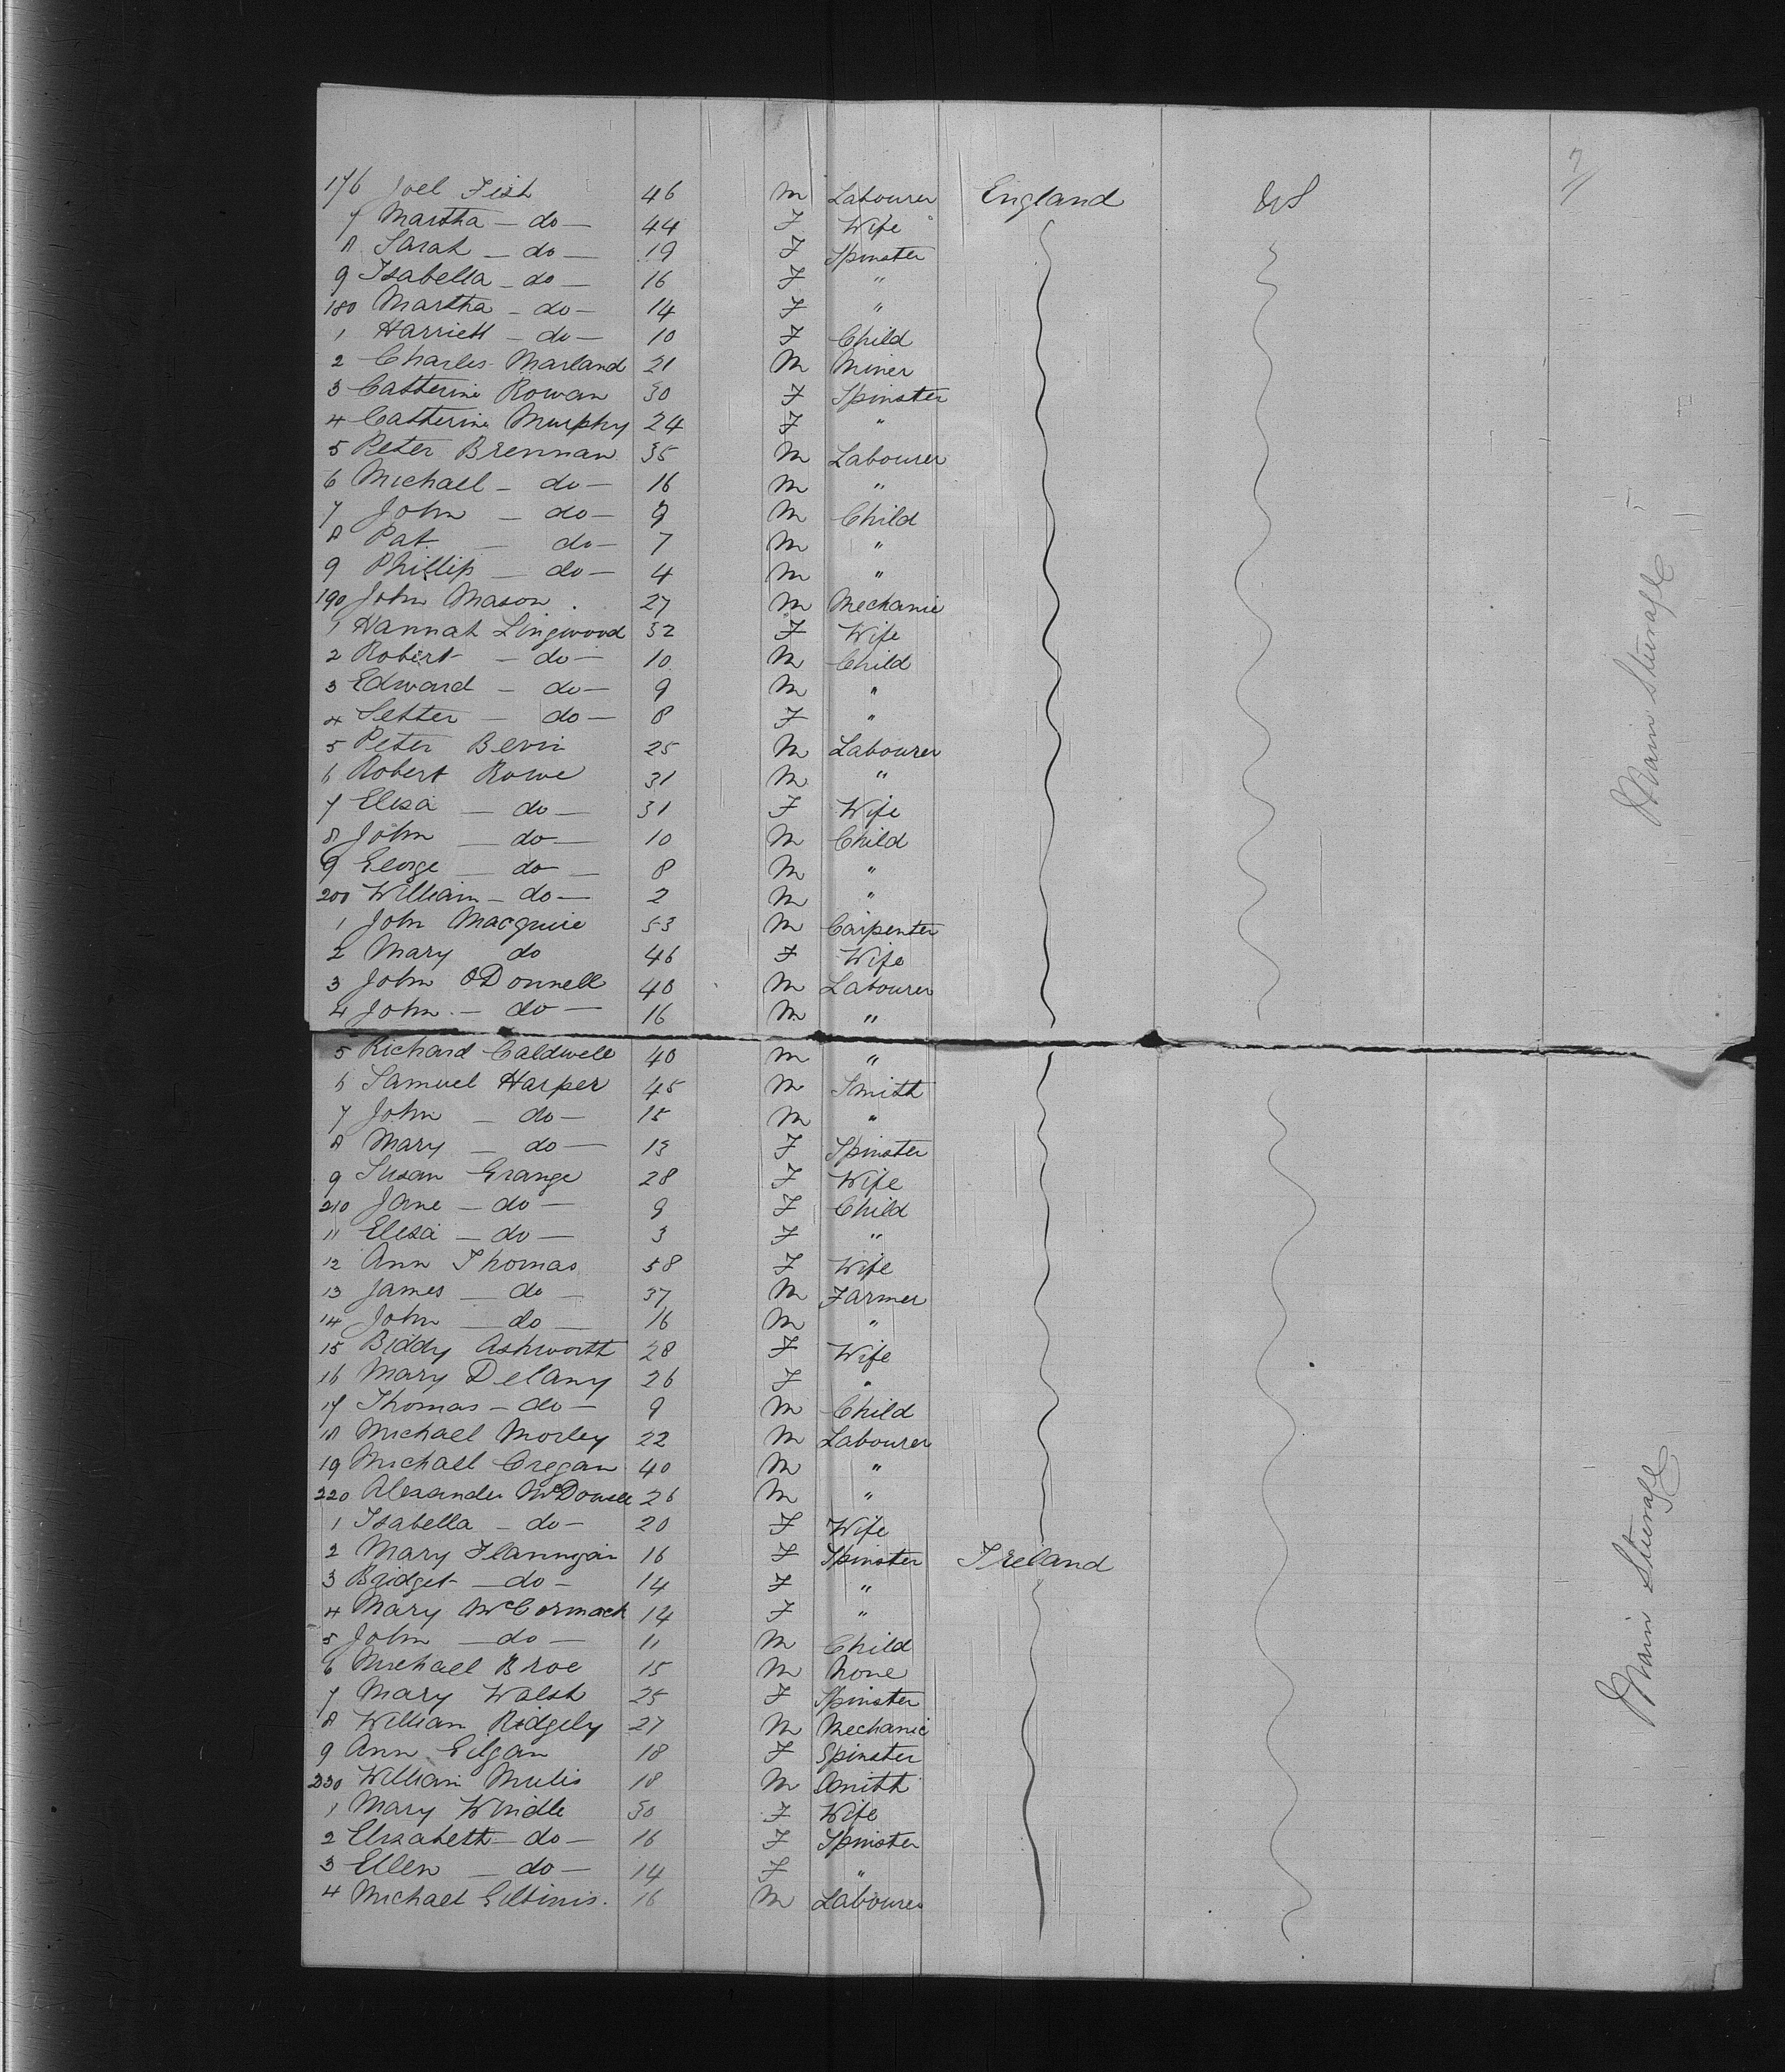 176 Joel Fish 46 M Labourer England US
7 Martha - do - 44 F Wife "
8 Sarah - do - 19 F Spinster
9 Isabella - do - 16 F "
180 Martha - do - 14 F "
1 Harriett - do - 10 F Child
2 Charles Marland 21 M Miner
3 Catherine Rowan 30 F Spinster
4 Catherine Murphy 24 F "
5 Peter Brennan 35 M Labourer
6 Michael - do - 16 M "
7 John - do - 9 M Child
8 Pat - do - 7 M "
9 Phillip - do - 4 M "
190 John Mason 27 M Mechanic
1 Hannah Lingwood 32 F Wife
2 Robert - do - 10 M Child
3 Edward - do - 9 M "
4 Setter - do - 8 F "
5 Peter Bevin 25 M Labourer
6 Robert Rowe 31 M "
7 Eliza - do - 31 F Wife
8 John - do - 10 M Child
9 George - do - 8 M "
200 William - do - 2 M "
1 John Macquire 53 M Carpenter
2 Mary do 46 F Wife
3 John O'Donnell 40 M Labourer
4 John - do - 16 M "
5 Richard Caldwell 40 M "
6 Samuel Harper 45 M Smith
7 John - do - 15 M "
8 Mary - do - 13 F Spinster
9 Susan Grange 28 F Wife
210 Jane - do - 9 F Child
11 Eliza - do - 3 F "
12 Ann Thomas 58 F Wife
13 James - do - 37 M Farmer
14 John - do - 16 M "
15 Biddy Ashworth 28 F Wife
16 Mary Delany 26 F "
17 Thomas - do - 9 M Child
18 Michael Morley 22 M Labourer
19 Michael Cregan 40 M "
220 Alexander McDowell 26 M "
1 Isabella - do - 20 F Wife
2 Mary Flannigan 16 F Spinster Ireland
3 Bridget - do - 14 F "
4 Mary McCormack 14 F "
5 John - do - 11 M Child
6 Michael Broe 15 M None
7 Mary Walsh 25 F Spinster
8 William Ridgely 27 M Mechanic
9 Ann Gilgan 18 F Spinster
230 William Mulis 18 M Smith
1 Mary Windle 50 F Wife
2 Elizabeth - do - 16 F Spinster
3 Ellen - do - 14 F "
4 Michael 16 M Labourer
7
Main Steerage
Main Steerage